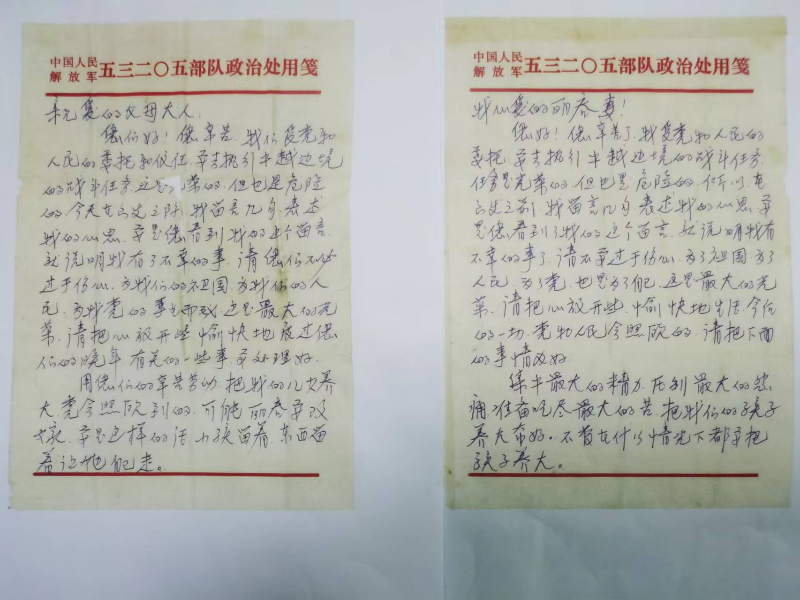 中国人民
解放军 五三二〇五部队政治处用笺
亲爱的父母大人：
您们好！您辛苦。我们受党和
人民的委托和
中越边境
的战斗任务 这是 荣的，但也是危险
的，今天在 之际，我留言几句，表述
我的心思，若是您看到我的这个留言，
就说明我有了不幸的事，请您们不必
过于伤心，为我们的祖国，为我们的人
民，为我党的事业 这是最大的光
荣，请把心放开些，愉快地度过您
们的晚年，有关的一些事要处理好。
用您们的辛苦劳动，把我的儿女养
大，党会照顾到的，可能丽春要改
嫁，若是这样的话，小孩留着，东西留
着让她自己走。
中国人民
解放军 五三二〇五部队政治处用笺
我心爱的丽春妻！
您好！您辛苦了，我受党和人民的
委托，要去执行中越边境的战斗任务，
任务是光荣的，但也是危险的，所以，在
之前，我留言几句，表述我的心思，若
是您看到了我的这个留言，就说明我有
不幸的事了，请不要过于伤心，为了祖国，为了
人民，为了党，也是为了自己，这是最大的光
荣，请把心放开些，愉快地生活，今后
的一切，党和人民会照顾的，请把下面
的事情做好。
集中最大的精力，压制最大的悲
痛，准备吃尽最大的苦，把我们的孩子
养大带好。不管在什么情况下都要把
孩子养大。